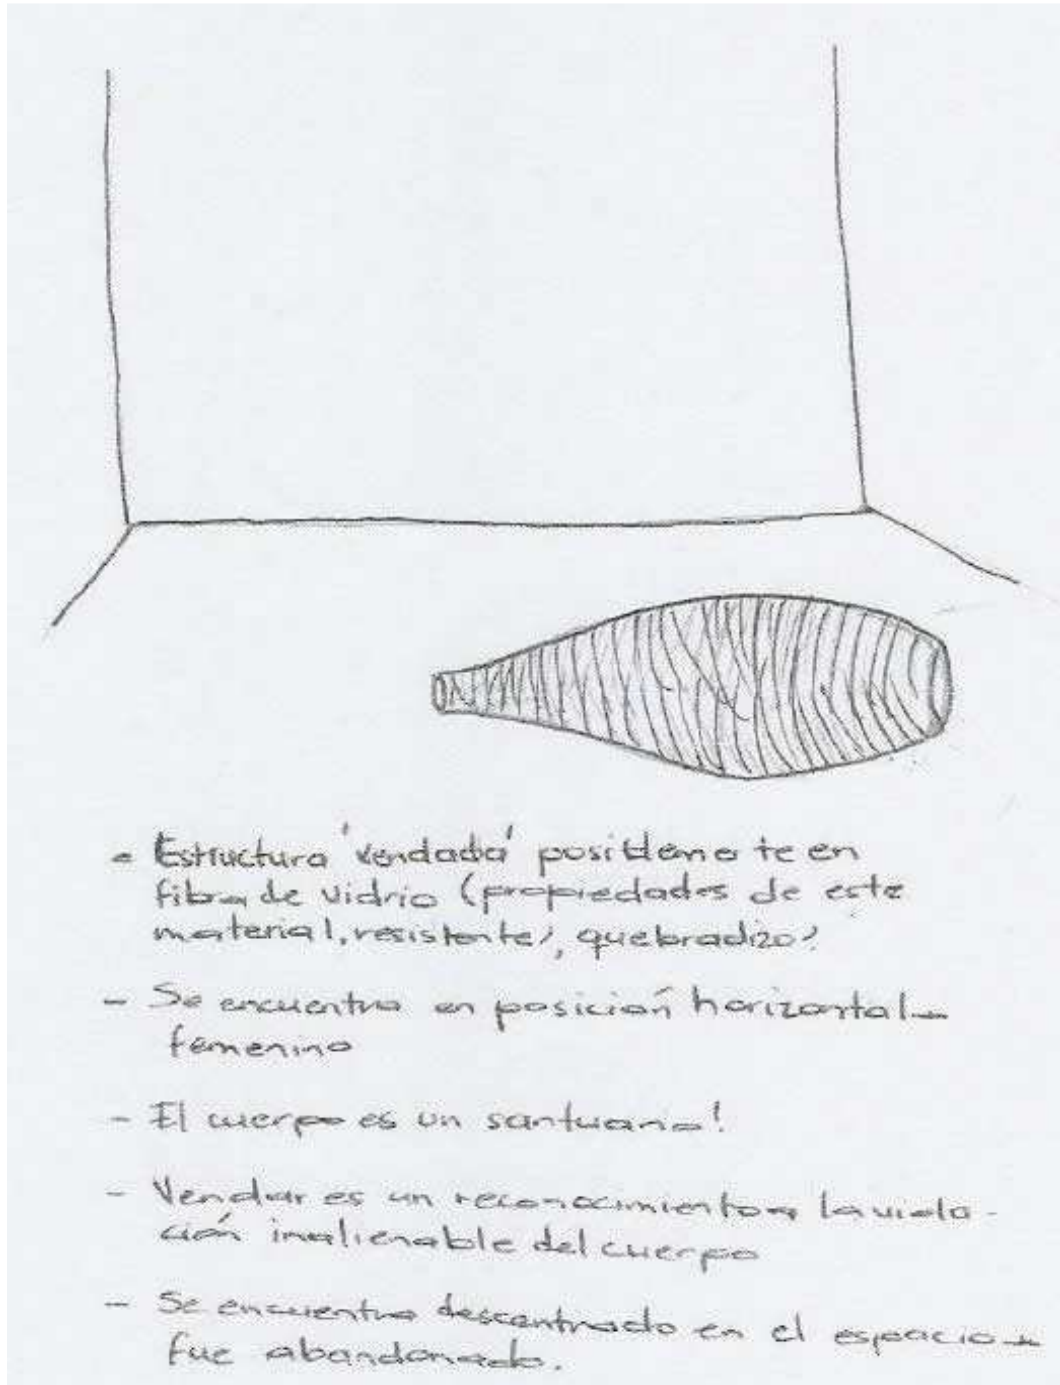 - Estructura 'vendada' posiblemente en
fibra de vidrio (propiedades de este
material, resistente, quebradizo)
- Se encuentra en posición horizontal -
femenino
- El cuerpo es un santuario!
- Vendar es un reconocimiento a la viola-
ción inalienable del cuerpo
- Se encuentra descentrado en el espacio -
fue abandonado.